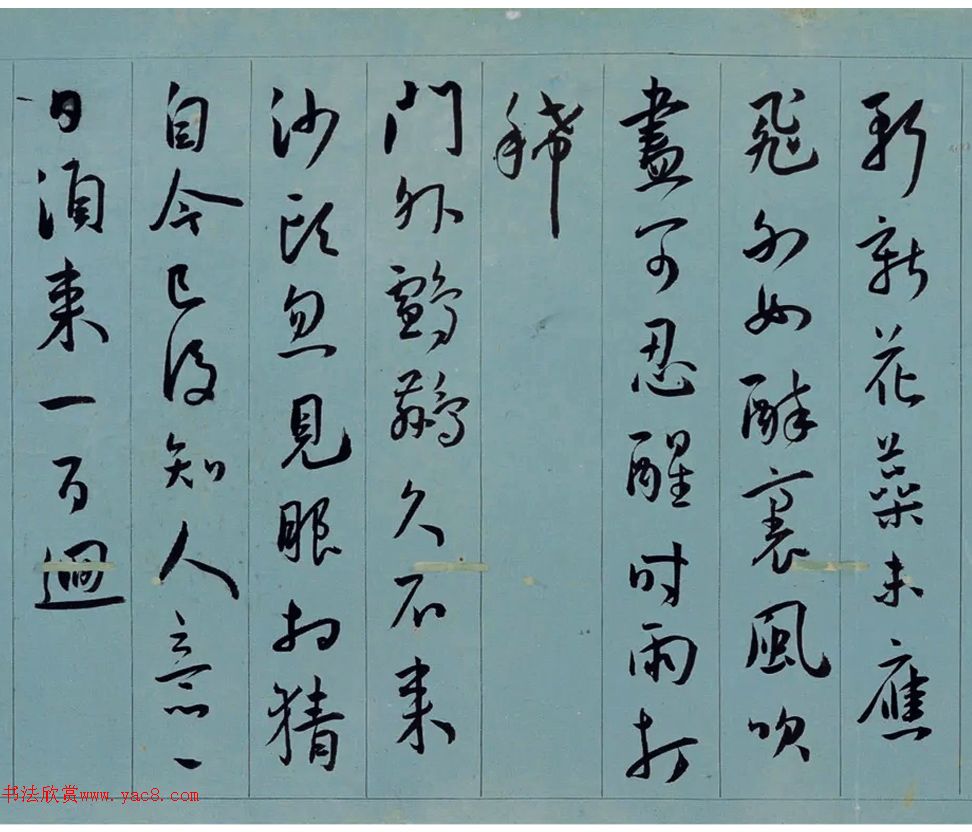 斬新花蘂未應
飛不如醉裏風吹
盡可忍醒時雨打
稀
門外鸕鷀久不來
沙頭忽見眼相猜
自今已後知人意一
日須來一百迴
书法欣赏www.yac8.com